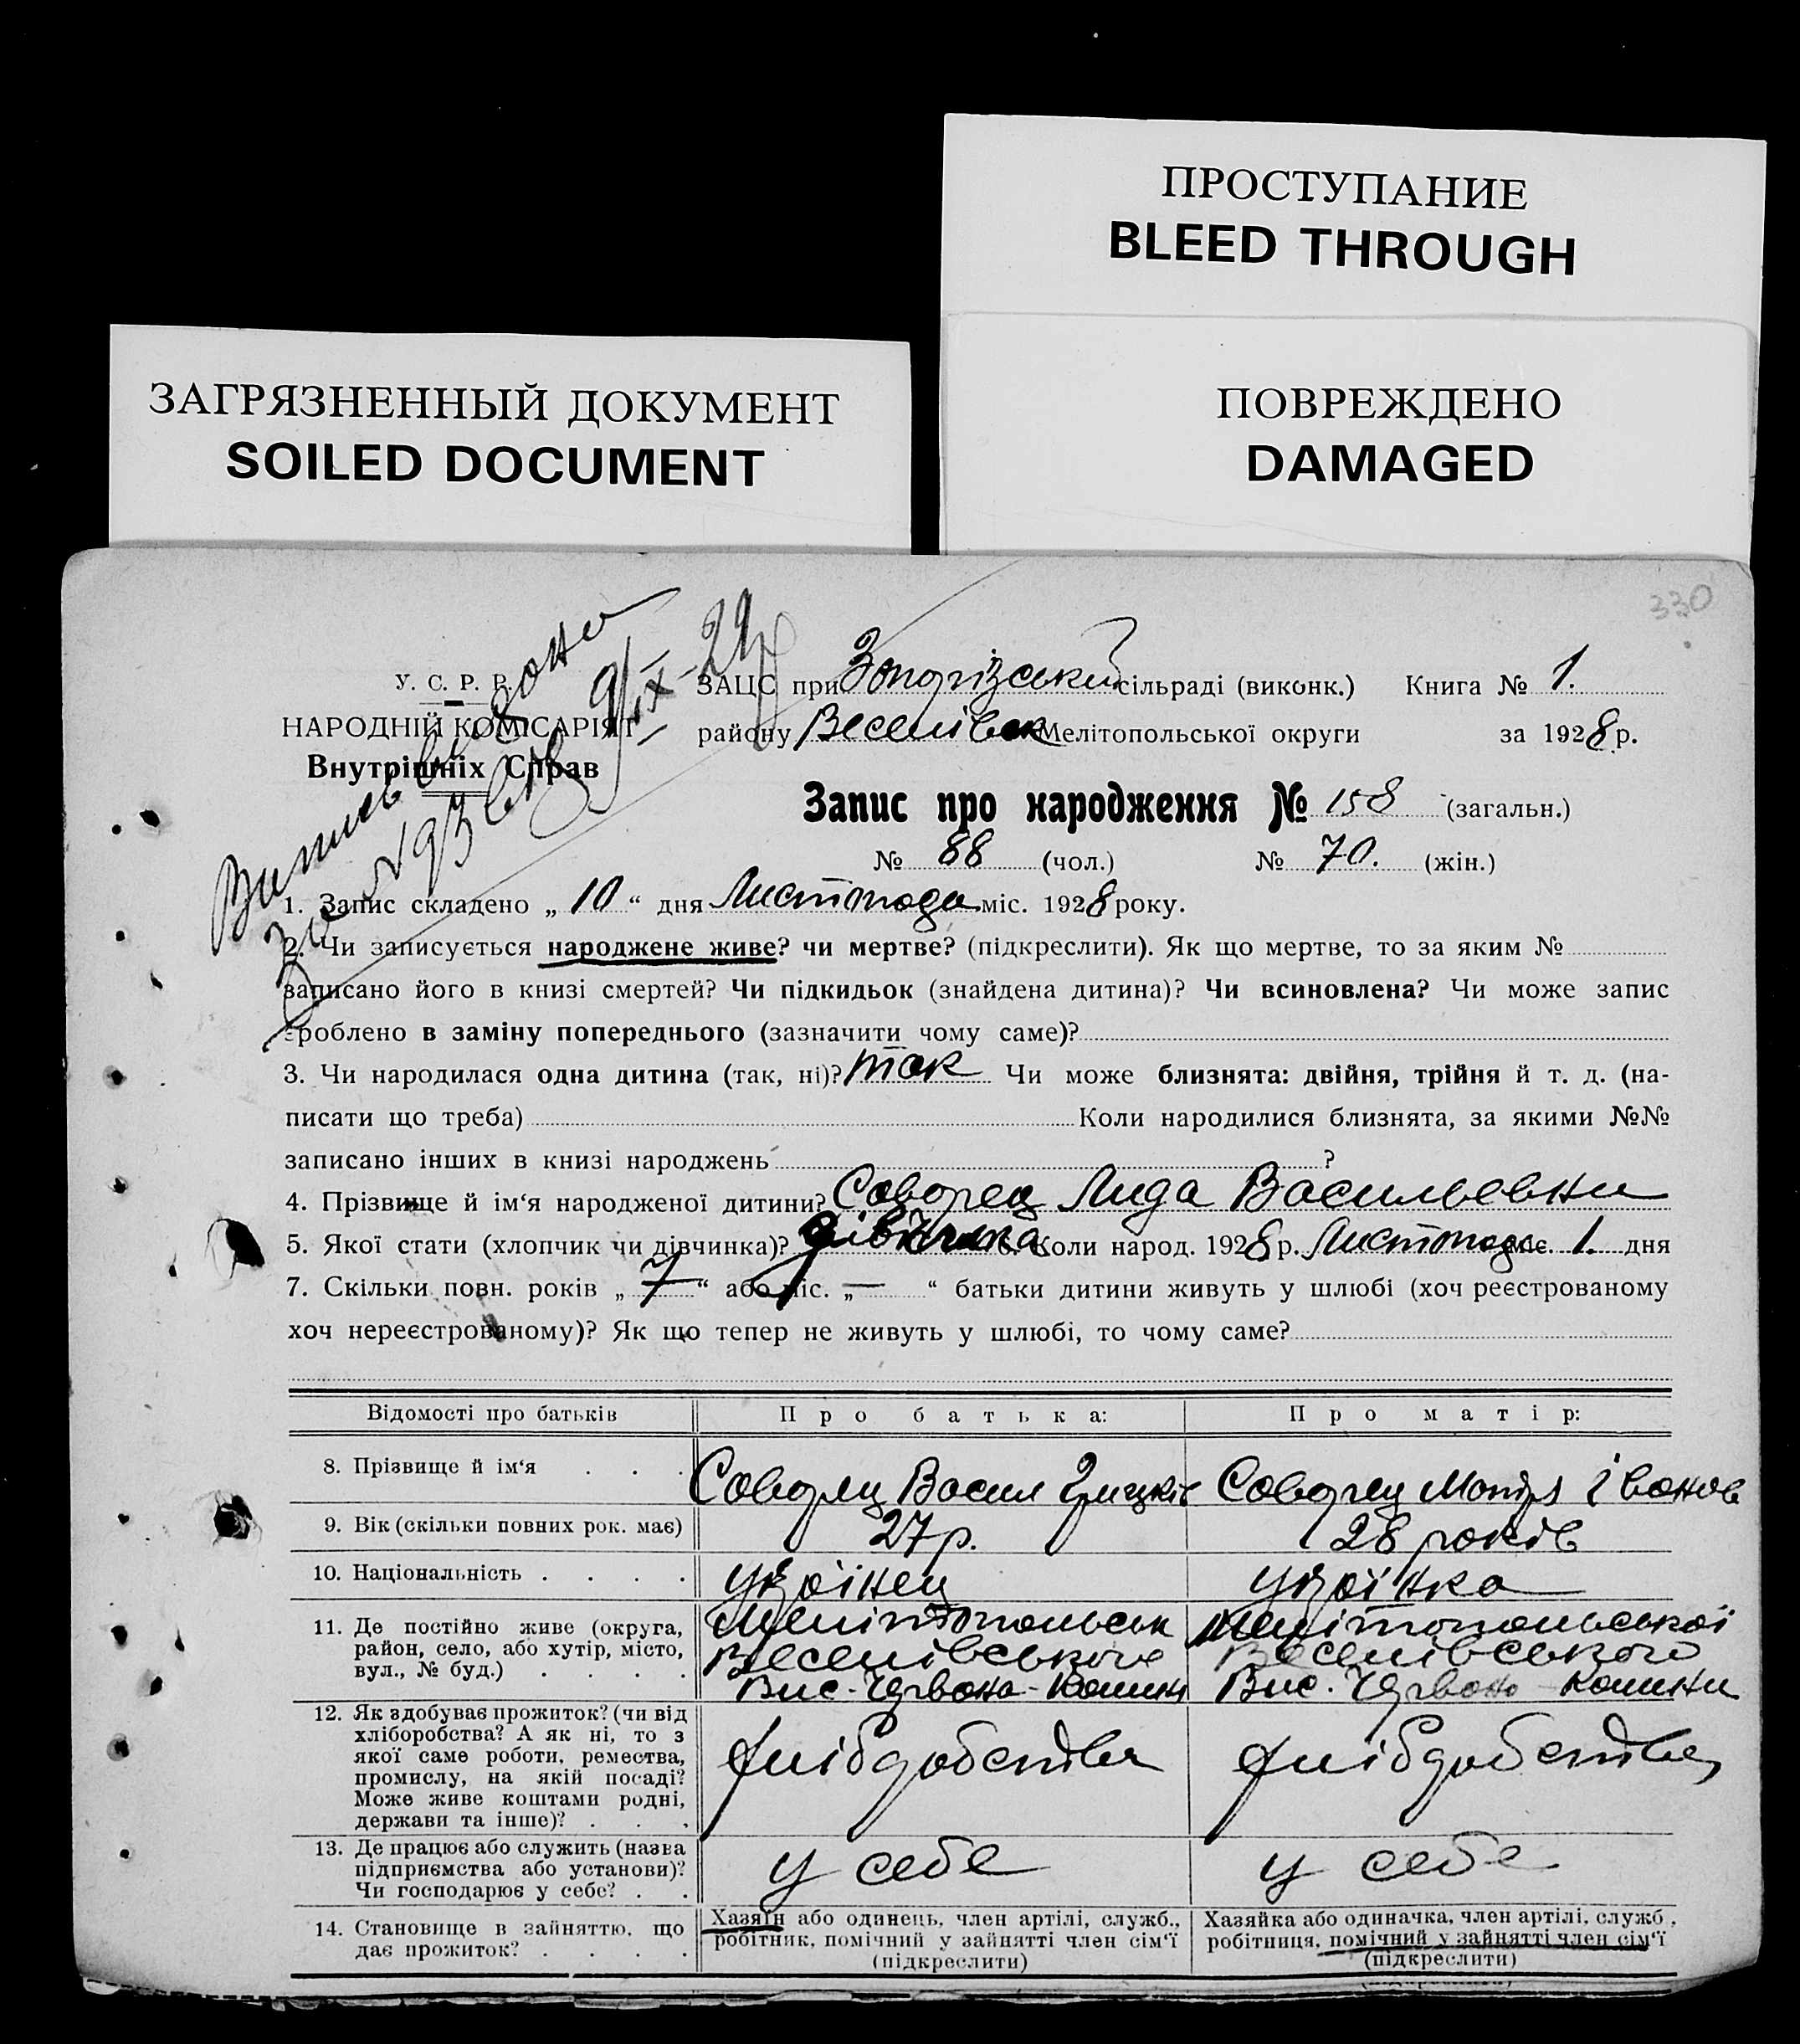 ПРОСТУПАНИЕ
BLEED THROUGH
ЗАГРЯЗНЕННЫЙ ДОКУМЕНТ
SOILED DOCUMENT
ПОВРЕЖДЕНО
DAMAGED
330
У. С. Р. Р.
НАРОДНІЙ КОМІСАРІЯТ
Внутрішніх Справ
9/IX-29
ЗАЦС при сільраді (виконк.) Книга № 1.
району Веселівск Мелітопольської округи за 1928 р.
Запис про народження № 158 (загальн.)
№ 88 (чол.) № 70. (жін.)
1. Запис складено „ 10 “ дня Листопада міс. 1928 року.
2. Чи записується народжене живе? чи мертве? (підкреслити). Як що мертве, то за яким №
записано його в книзі смертей? Чи підкидьок (знайдена дитина)? Чи всиновлена? Чи може запис
зроблено в заміну попереднього (зазначити чому саме)?
3. Чи народилася одна дитина (так, ні)? так Чи може близнята: двійня, трійня й т. д. (на-
писати що треба) Коли народилися близнята, за якими №№
записано інших в книзі народжень ?
4. Прізвище й ім‘я народженої дитини? Лида Васильевни
5. Якої стати (хлопчик чи дівчинка)? дівчина 6. Коли народ. 1928 р. Листопада міс. 1. дня
7. Скільки повн. років „ 7 “ або міс. „ — “ батьки дитини живуть у шлюбі (хоч реєстрованому
хоч нереєстрованому)? Як що тепер не живуть у шлюбі, то чому саме?
Відомості про батьків Про батька: Про матір:
8. Прізвище й ім‘я . . . Васил Іванов
9. Вік (скільки повних рок. має) 27 р. 28 років
10. Національність . . . . україїнец україїнка
11. Де постійно живе (округа, Мелітопольськ Мелітопольської
район, село, або хутір, місто, Веселівського Веселівського
вул., № буд.) . . . . Вис. Червона- Вис. Червоно
12. Як здобуває прожиток? (чи від
хліборобства? А як ні, то з
якої саме роботи, ремества, хлібробства хлібробства
промислу, на якій посаді?
Може живе коштами родні,
держави та інше)? . . .
13. Де працює або служить (назва
підприємства або установи)? у себе у себе
Чи господарює у себе? . .
14. Становище в зайняттю, що Хазяїн або одинець, член артілі, служб., Хазяйка або одиначка, член артілі, служб.,
дає прожиток? . . . . робітник, помічний у зайнятті член сім‘ї робітниця, помічний у зайнятті член сім‘ї
(підкреслити) (підкреслити)